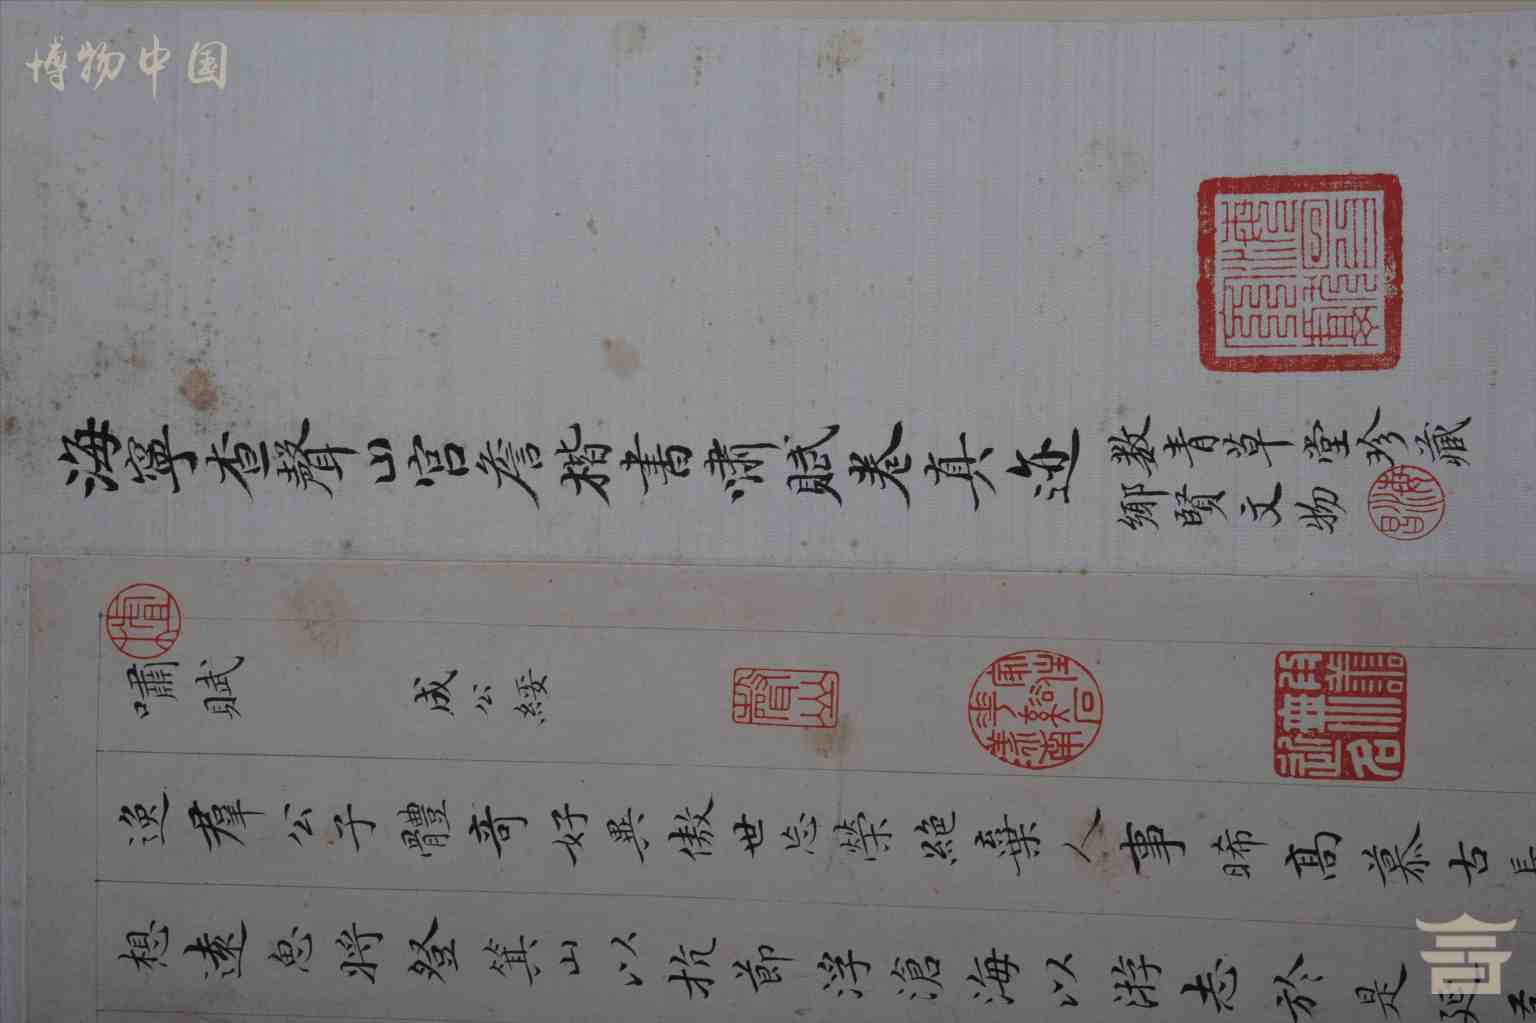 博物中国
海寧查聲山宫詹楷書嘯賦卷真迹
數青草堂珍藏
鄉賢文物
嘯賦 成公綏
逸羣公子體奇好異傲世忘榮絶棄人事晞高慕古長
想遠思將登箕山以抗節浮滄海以游志於是